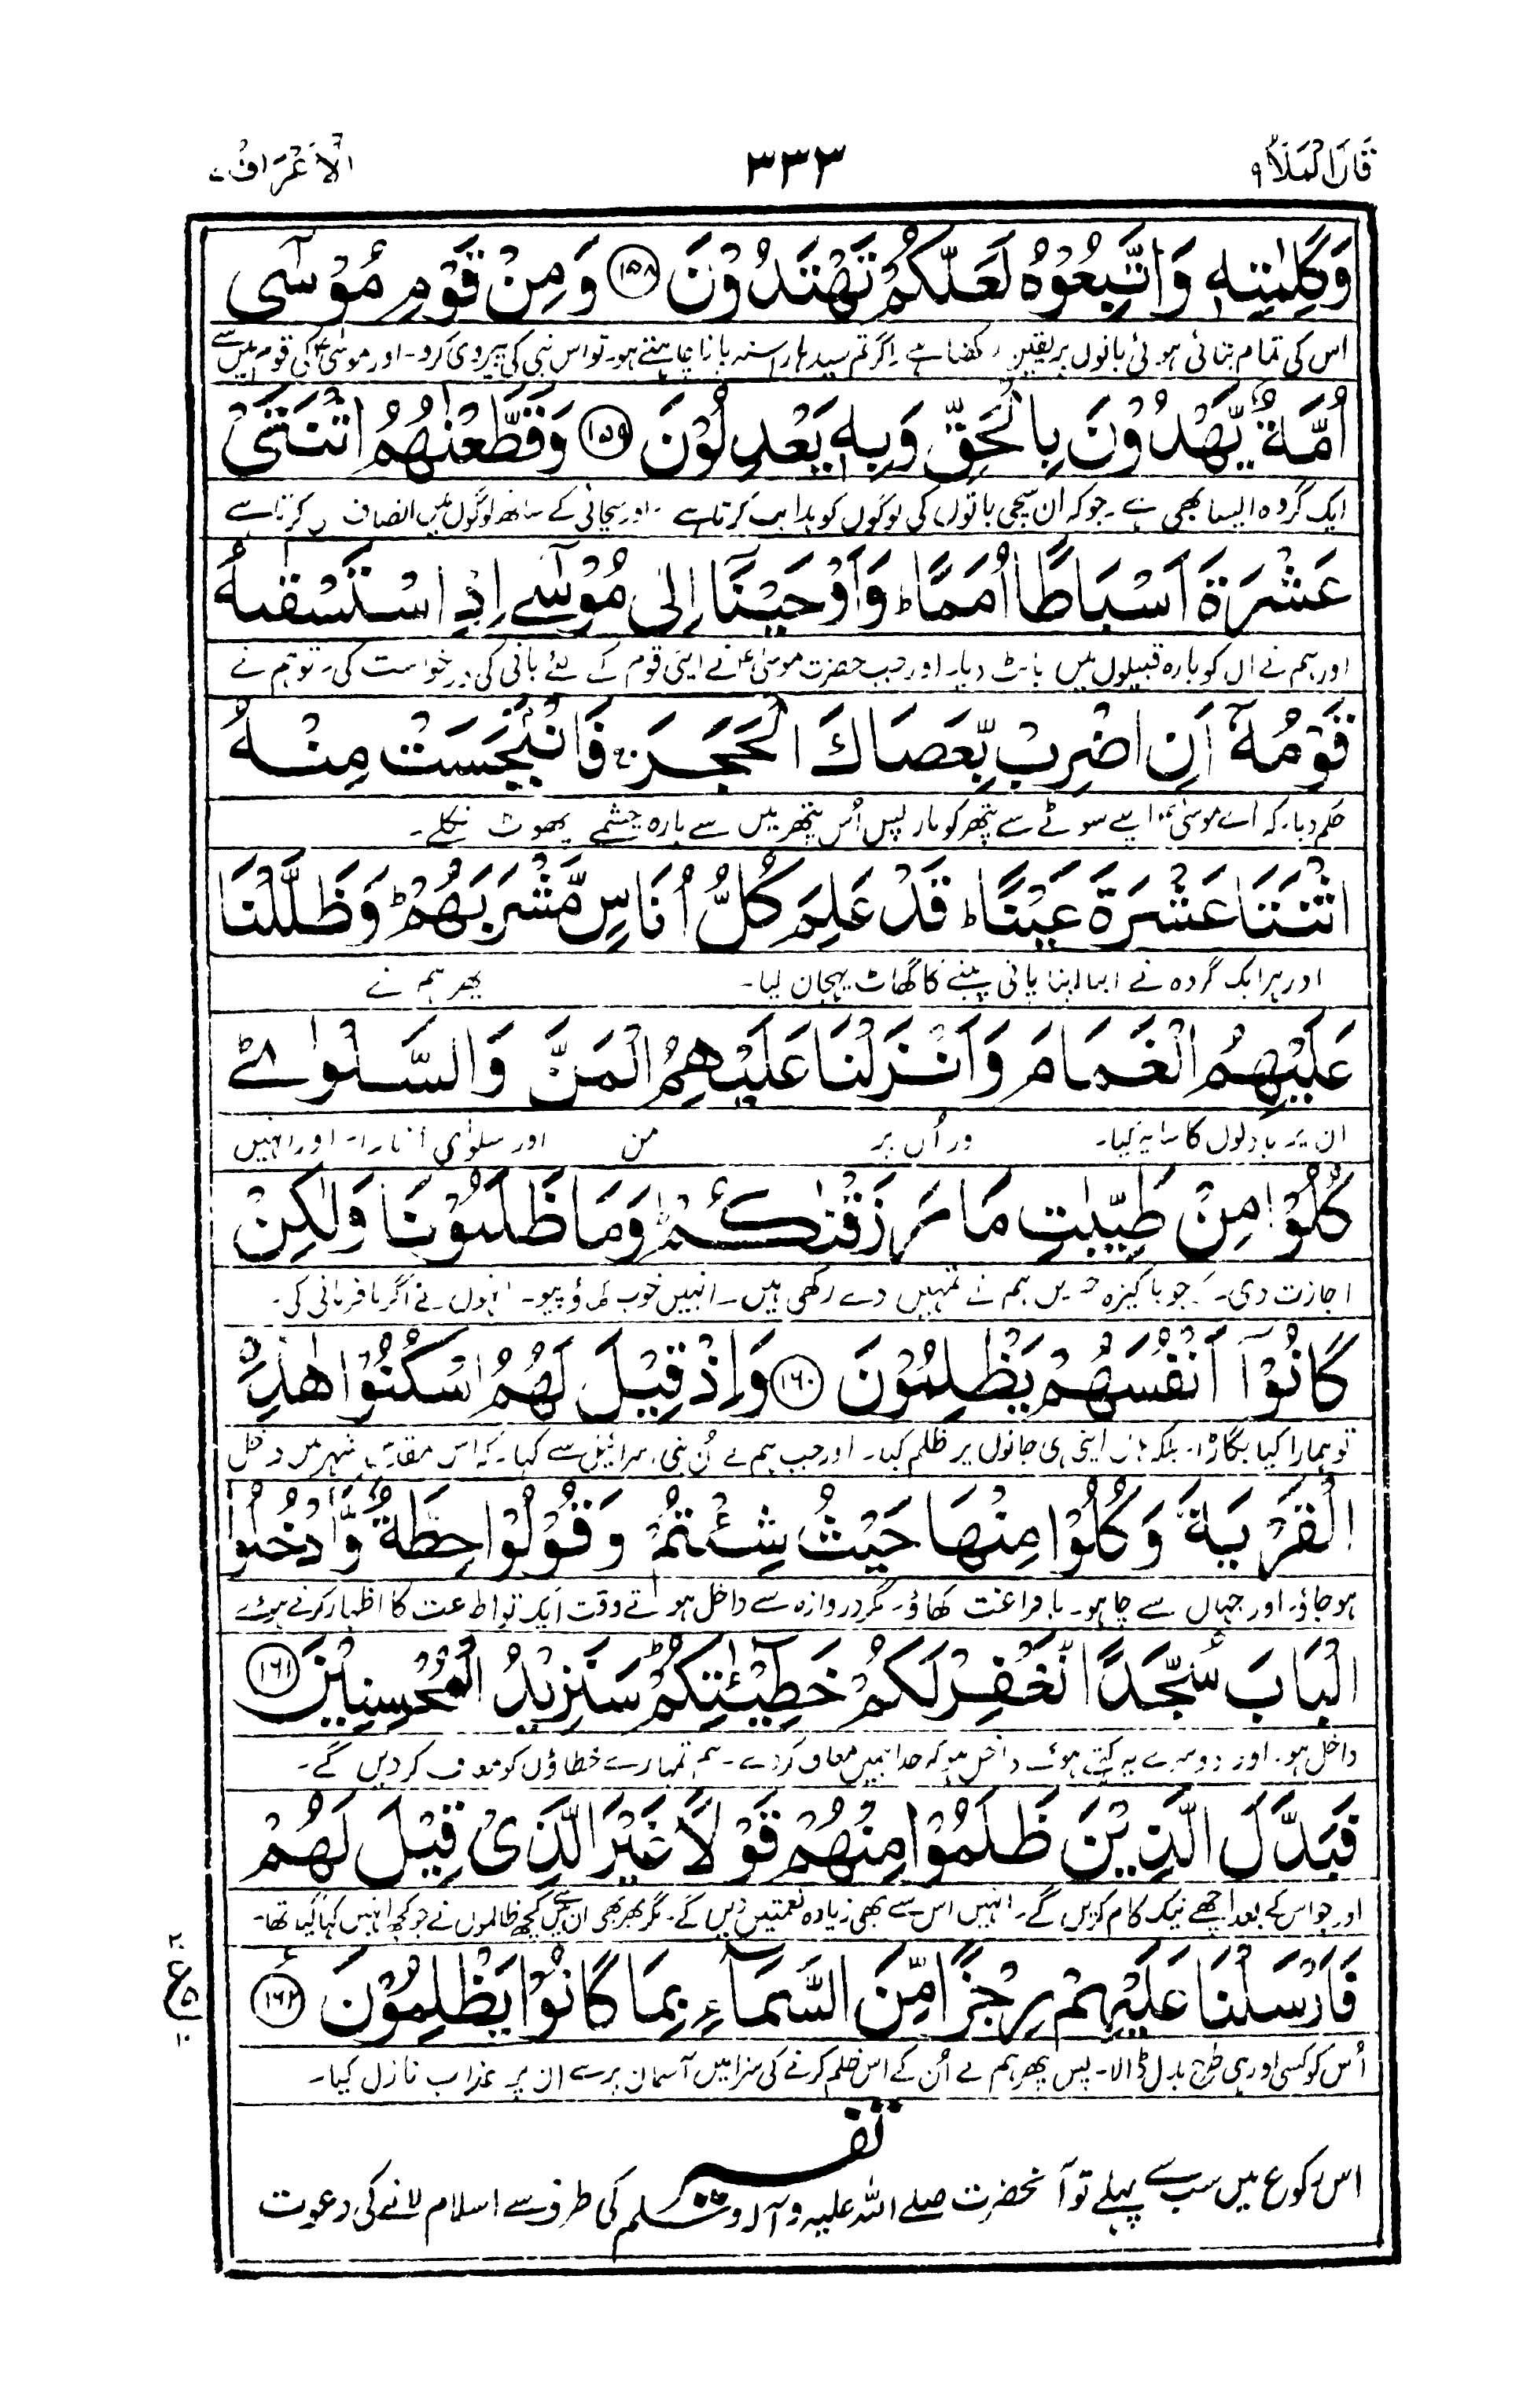 قَالَ الْمَلَأُ ۹
۳۳۳
اَلْاَعْرَاف ۷
وَكَلِمٰتِهٖ وَاتَّبِعُوْهُ لَعَلَّكُمْ تَهْتَدُوْنَ ﴿۱۵۸﴾ وَمِنْ قَوْمِ مُوْسٰٓى
اس کی تمام بتائی ہوئی باتوں پر یقین رکھتا ہے اگر تم سیدھا راستہ پانا چاہتے ہو۔ تو اس نبی کی پیروی کرو۔ اور موسیٰؑ کی قوم میں سے
اُمَّةٌ يَّهْدُوْنَ بِالْحَقِّ وَبِهٖ يَعْدِلُوْنَ ﴿۱۵۹﴾ وَقَطَّعْنٰهُمُ اثْنَتَىْ
ایک گروہ ایسا بھی ہے۔ جو کہ ان سچی باتوں کی لوگوں کو ہدایت کرتا ہے۔ اور سچائی کے ساتھ لوگوں میں انصاف کرتا ہے
عَشْرَةَ اَسْبَاطًا اُمَمًا ؕ وَاَوْحَيْنَآ اِلٰى مُوْسٰٓى اِذِ اسْتَسْقٰىهُ
اور ہم نے ان کو بارہ قبیلوں میں بانٹ دیا۔ اور جب حضرت موسیٰؑ نے اپنی قوم کے لئے پانی کی درخواست کی۔ تو ہم نے
قَوْمُهٗٓ اَنِ اضْرِبْ بِّعَصَاكَ الْحَجَرَ ۚ فَانْۢبَجَسَتْ مِنْهُ
حکم دیا۔ کہ اے موسیٰؑ اپنے سوٹے سے پتھر کو مار پس اُس پتھر میں سے بارہ چشمے پھوٹ نکلے۔
اثْنَتَا عَشْرَةَ عَيْنًا ؕ قَدْ عَلِمَ كُلُّ اُنَاسٍ مَّشْرَبَهُمْ ؕ وَظَلَّلْنَا
اور ہر ایک گروہ نے اپنا اپنا پانی پینے کا گھاٹ پہچان لیا۔ پھر ہم نے
عَلَيْهِمُ الْغَمَامَ وَاَنْزَلْنَا عَلَيْهِمُ الْمَنَّ وَالسَّلْوٰى ؕ
ان پر بادلوں کا سایہ کیا۔ اور اُن پر من اور سلوٰی اتارا۔ اور انہیں
كُلُوْا مِنْ طَيِّبٰتِ مَا رَزَقْنٰكُمْ ؕ وَمَا ظَلَمُوْنَا وَلٰكِنْ
اجازت دی۔ کہ جو پاکیزہ چیزیں ہم نے تمہیں دے رکھی ہیں۔ انہیں خوب کھاؤ پیو۔ انہوں نے اگر نافرمانی کی۔
كَانُوْٓا اَنْفُسَهُمْ يَظْلِمُوْنَ ﴿۱۶۰﴾ وَاِذْ قِيْلَ لَهُمُ اسْكُنُوْا هٰذِهِ
تو ہمارا کیا بگاڑا۔ بلکہ اپنی ہی جانوں پر ظلم کیا۔ اور جب ہم نے اُن بنی اسرائیل سے کہا۔ کہ اس مقدس شہر میں داخل
الْقَرْيَةَ وَكُلُوْا مِنْهَا حَيْثُ شِئْتُمْ وَقُوْلُوْا حِطَّةٌ وَّادْخُلُوا
ہو جاؤ۔ اور جہاں سے چاہو۔ با فراغت کھاؤ۔ مگر دروازہ سے داخل ہوتے وقت ایک تو اطاعت کا اظہار کرتے ہوئے
الْبَابَ سُجَّدًا نَّغْفِرْ لَكُمْ خَطِيْٓـٰٔتِكُمْ ؕ سَنَزِيْدُ الْمُحْسِنِيْنَ ﴿۱۶۱﴾
داخل ہو۔ اور دوسرے یہ کہتے ہوئے داخل ہو کہ خدا ہمیں معاف کر دے۔ ہم تمہارے خطاؤں کو معاف کر دیں گے۔
فَبَدَّلَ الَّذِيْنَ ظَلَمُوْا مِنْهُمْ قَوْلًا غَيْرَ الَّذِىْ قِيْلَ لَهُمْ
اور جو اس کے بعد اچھے نیک کام کریں گے۔ انہیں اس سے بھی زیادہ نعمتیں دیں گے۔ مگر پھر بھی ان میں سے کچھ ظالموں نے جو کچھ انہیں کہا گیا تھا۔
فَاَرْسَلْنَا عَلَيْهِمْ رِجْزًا مِّنَ السَّمَآءِ بِمَا كَانُوْا يَظْلِمُوْنَ ﴿۱۶۲﴾
اُس کو کسی اور ہی طرح بدل ڈالا۔ پس پھر ہم نے اُن کے اس ظلم کرنے کی سزا میں آسمان پر سے ان پر عذاب نازل کیا۔
تفسیر
اس رکوع میں سب سے پہلے تو آنحضرت صلے اللہ علیہ وآلہ وسلم کی طرف سے اسلام لانے کی دعوت